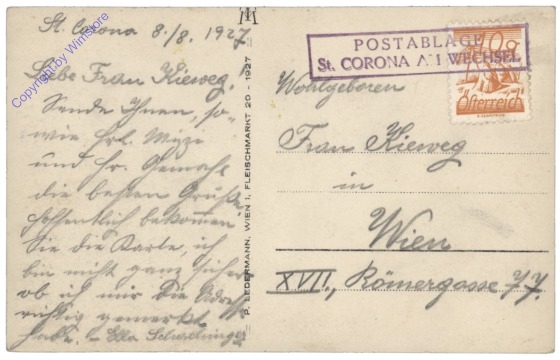 St. Corona 8./8. 1927
Liebe Frau Kieweg,
Sende Ihnen, so-
wie Frl. Mizi
und Hr. Gemahl
die besten Grüße,
hoffentlich bekommen
Sie die Karte, ich
bin nicht ganz sicher
ob ich mir die Adresse
richtig gemerkt
habe. - Ella
P. LEDERMANN, WIEN I, FLEISCHMARKT 20 - 1927
POSTABLAGE
St. CORONA AM WECHSEL
10g
Österreich
Wohlgeboren
Frau Kieweg
in
Wien
XVII., Römergasse 77.
Copyright by Winstore